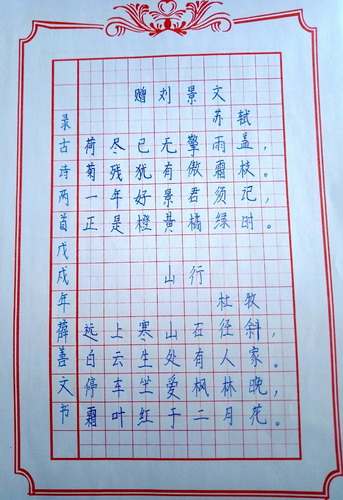 赠刘景文
苏轼
荷尽已无擎雨盖，
菊残犹有傲霜枝。
一年好景君须记，
正是橙黄橘绿时。
山行
杜牧
远上寒山石径斜，
白云生处有人家。
停车坐爱枫林晚，
霜叶红于二月花。
录古诗两首戊戌年薛善文书